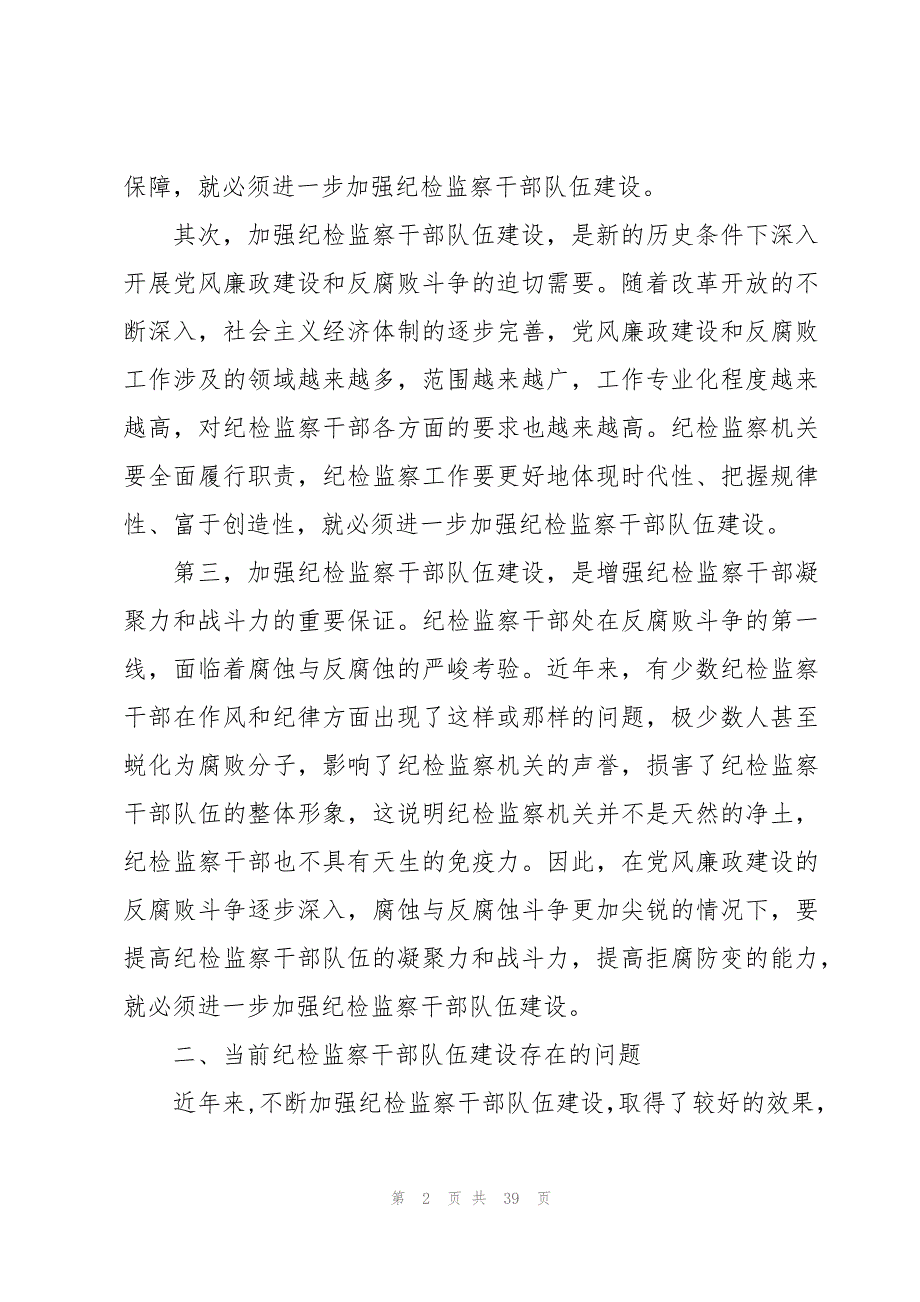 保障，就必须进一步加强纪检监察干部队伍建设。
其次，加强纪检监察干部队伍建设，是新的历史条件下深入
开展党风廉政建设和反腐败斗争的迫切需要。随着改革开放的不
断深入，社会主义经济体制的逐步完善，党风廉政建设和反腐败
工作涉及的领域越来越多，范围越来越广，工作专业化程度越来
越高，对纪检监察干部各方面的要求也越来越高。纪检监察机关
要全面履行职责，纪检监察工作要更好地体现时代性、把握规律
性、富于创造性，就必须进一步加强纪检监察干部队伍建设。
第三，加强纪检监察干部队伍建设，是增强纪检监察干部凝
聚力和战斗力的重要保证。纪检监察干部处在反腐败斗争的第一
线，面临着腐蚀与反腐蚀的严峻考验。近年来，有少数纪检监察
干部在作风和纪律方面出现了这样或那样的问题，极少数人甚至
蜕化为腐败分子，影响了纪检监察机关的声誉，损害了纪检监察
干部队伍的整体形象，这说明纪检监察机关并不是天然的净土，
纪检监察干部也不具有天生的免疫力。因此，在党风廉政建设的
反腐败斗争逐步深入，腐蚀与反腐蚀斗争更加尖锐的情况下，要
提高纪检监察干部队伍的凝聚力和战斗力，提高拒腐防变的能力，
就必须进一步加强纪检监察干部队伍建设。
二、当前纪检监察干部队伍建设存在的问题
近年来,不断加强纪检监察干部队伍建设,取得了较好的效果,
第 2 页 共 39 页